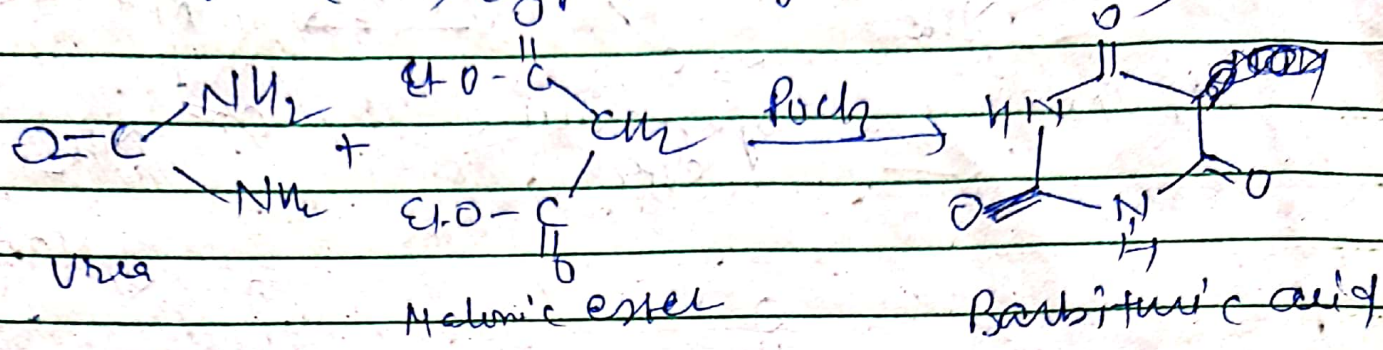 O
O=C
NH2
NH2
+
Et O - C
O
CH2
Et.O - C
O
POCl3
O
HN
O
N
H
O
Urea
Malonic ester
Barbituric acid